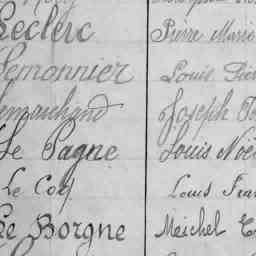 Leclerc Pierre Marie
Lemonnier Louis
Lemarchand Joseph
Le Pagne Louis Noë
Le Coq Louis Fra
Le Borgne Meichel